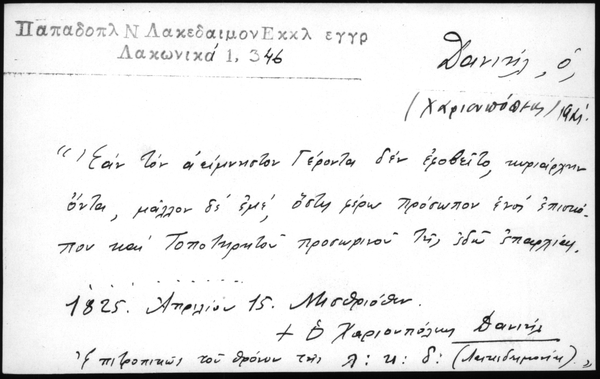 Παπαδοπλ Ν Λακεδαιμον Εκκλ εγγρ
Λακωνικά 1, 346
Δανιήλ, ὁ,
(Χαριουπόλεως)
"Ἐὰν τὸν ἀείμνηστον Γέροντα δὲν ἐφοβεῖτο, κυριάρχην
ὄντα, μᾶλλον δὲ ἐμέ, ὅστις φέρω πρόσωπον ἑνὸς ἐπισκό-
που καὶ Τοποτηρητοῦ προσωρινοῦ τῆς ἐδῶ ἐπαρχίας.
1825. Ἀπριλίου 15. Μισθριόθεν.
+ Ὁ Χαριουπόλεως Δανιήλ
Ἐπιτροπικῶς τοῦ θρόνου τῆς λ: κ: δ: (Λακεδαιμονίας)."